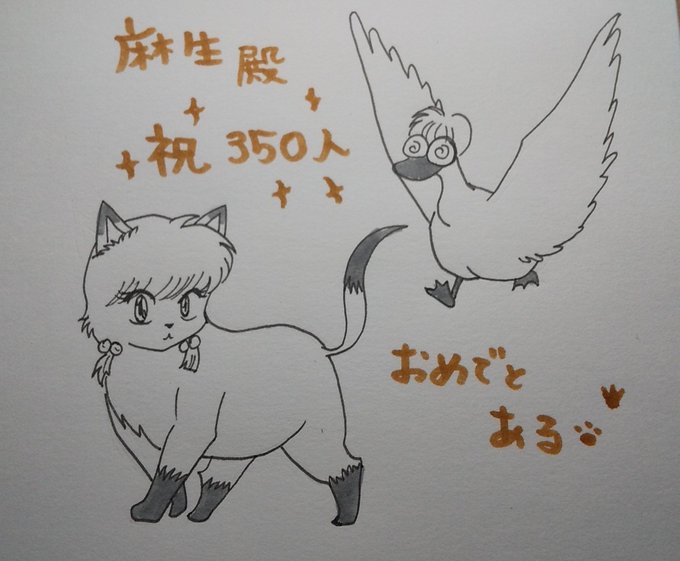 麻生殿
祝350人
おめでと
ある